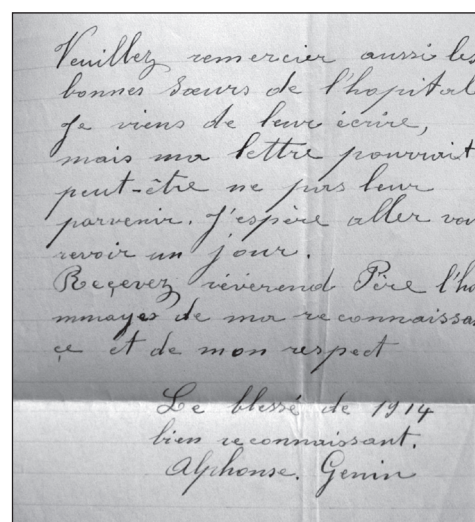 Veuillez remercier aussi les
bonnes Sœurs de l'hopital
Je viens de leur écrire,
mais ma lettre pourrait
peut-être ne pas leur
parvenir. J'espère aller vou
revoir un jour.
Reçevez révérend Père l'ho
mmages de ma reconnaissan
çe et de mon respect
Le blessé de 1914
bien reconnaissant.
Alphonse. Genin